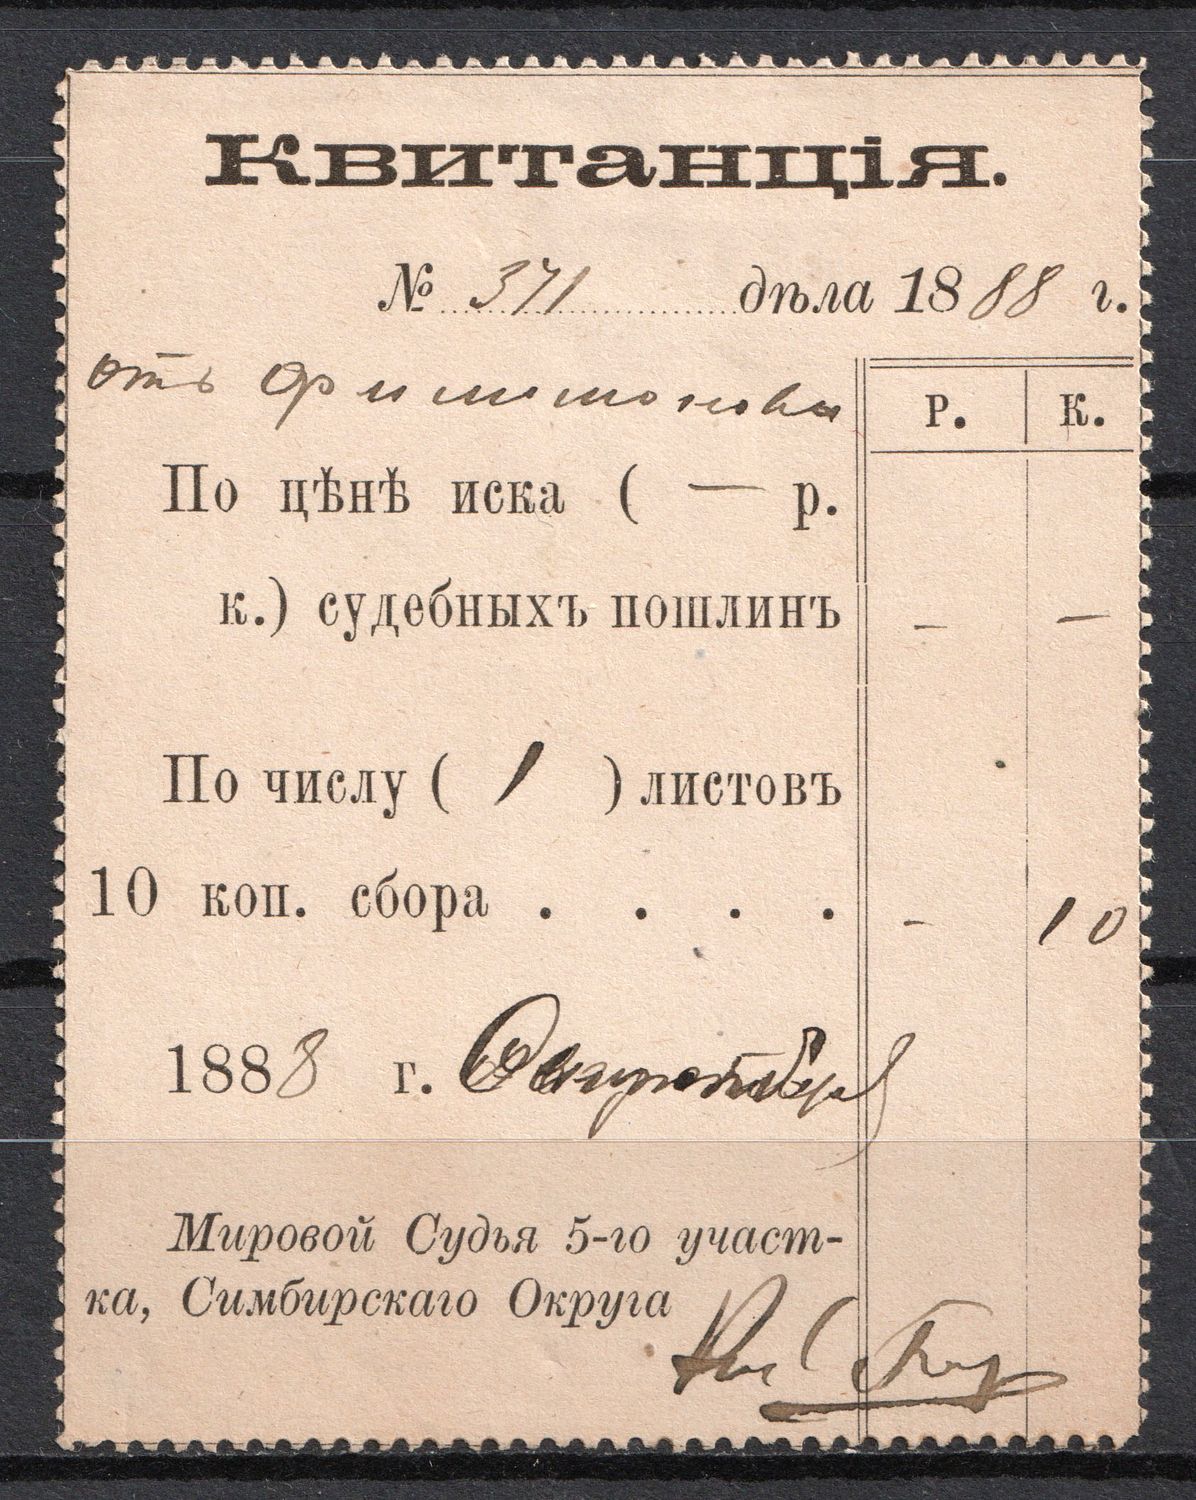 Квитанція.
№ 371 дѣла 1888 г.
отъ Филимонова
Р. К.
По цѣнѣ иска ( — р.
к.) судебныхъ пошлинъ – –
По числу ( 1 ) листовъ
10 коп. сбора . . . . – 10
1888 г.
Мировой Судья 5-го участ-
ка, Симбирскаго Округа